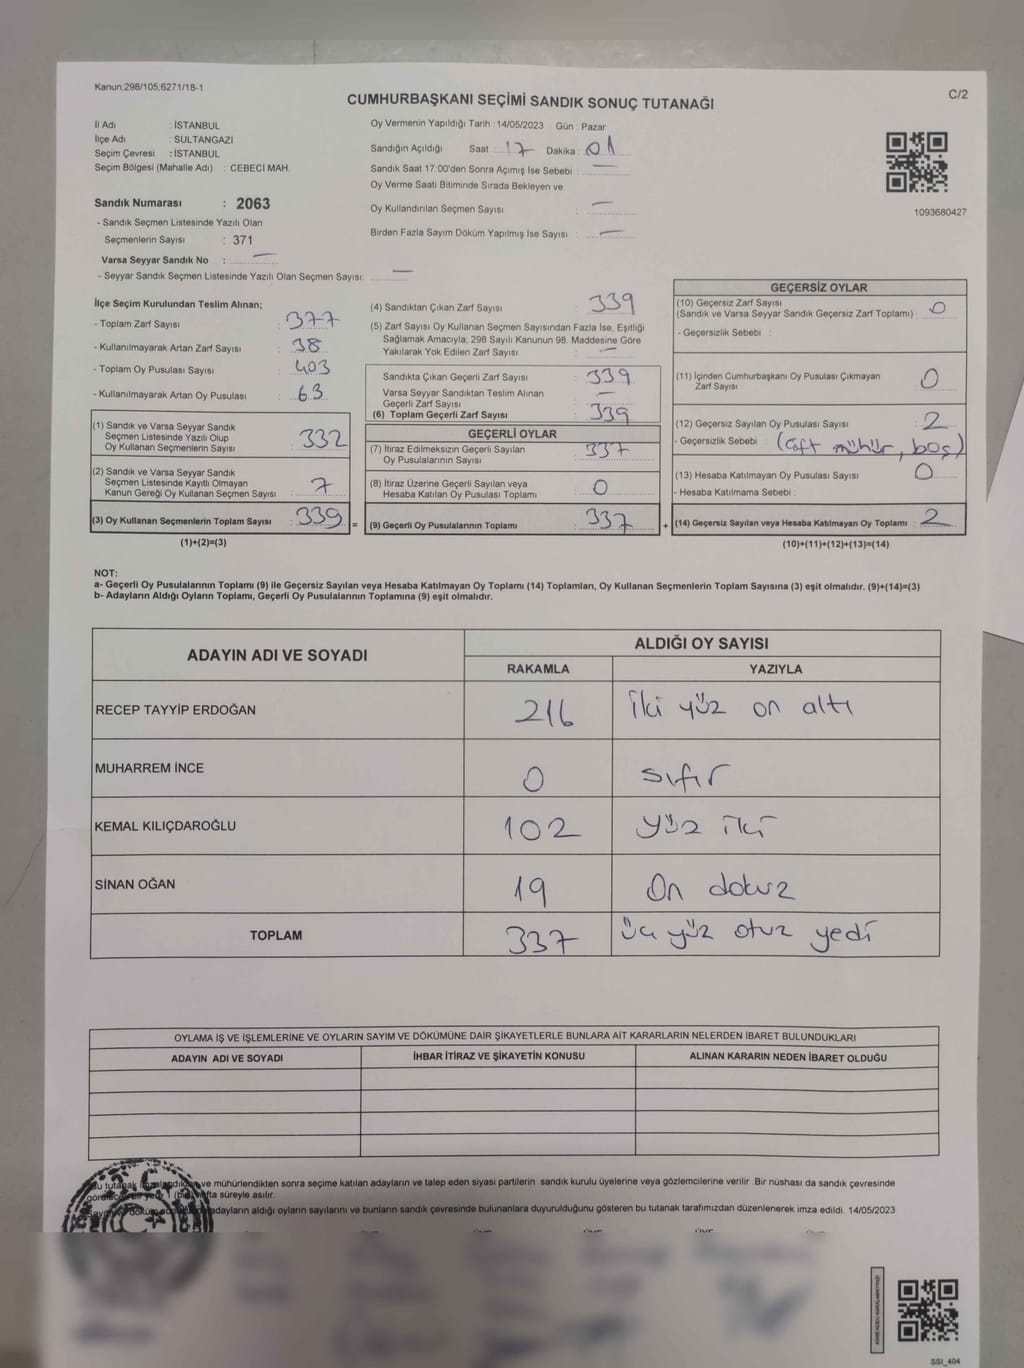 Kanun:298/105;6271/18-1
C/2
CUMHURBAŞKANI SEÇİMİ SANDIK SONUÇ TUTANAĞI
İl Adı : İSTANBUL
İlçe Adı : SULTANGAZİ
Seçim Çevresi : İSTANBUL
Seçim Bölgesi (Mahalle Adı) : CEBECİ MAH.
Sandık Numarası : 2063
- Sandık Seçmen Listesinde Yazılı Olan
Seçmenlerin Sayısı : 371
Varsa Seyyar Sandık No : —
- Seyyar Sandık Seçmen Listesinde Yazılı Olan Seçmen Sayısı: —
Oy Vermenin Yapıldığı Tarih : 14/05/2023 Gün : Pazar
Sandığın Açıldığı Saat : 17 Dakika : 01
Sandık Saat 17:00'den Sonra Açımış İse Sebebi : —
Oy Verme Saati Bitiminde Sırada Bekleyen ve
Oy Kullandırılan Seçmen Sayısı : —
Birden Fazla Sayım Döküm Yapılmış İse Sayısı : —
1093680427
İlçe Seçim Kurulundan Teslim Alınan;
- Toplam Zarf Sayısı : 377
- Kullanılmayarak Artan Zarf Sayısı : 38
- Toplam Oy Pusulası Sayısı : 403
- Kullanılmayarak Artan Oy Pusulası : 63
(1) Sandık ve Varsa Seyyar Sandık
Seçmen Listesinde Yazılı Olup
Oy Kullanan Seçmenlerin Sayısı : 332
(2) Sandık ve Varsa Seyyar Sandık
Seçmen Listesinde Kayıtlı Olmayan
Kanun Gereği Oy Kullanan Seçmen Sayısı : 7
(3) Oy Kullanan Seçmenlerin Toplam Sayısı : 339 =
(1)+(2)=(3)
(4) Sandıktan Çıkan Zarf Sayısı : 339
(5) Zarf Sayısı Oy Kullanan Seçmen Sayısından Fazla İse, Eşitliği
Sağlamak Amacıyla; 298 Sayılı Kanunun 98. Maddesine Göre
Yakılarak Yok Edilen Zarf Sayısı : —
Sandıkta Çıkan Geçerli Zarf Sayısı : 339
Varsa Seyyar Sandıktan Teslim Alınan
Geçerli Zarf Sayısı : —
(6) Toplam Geçerli Zarf Sayısı : 339
GEÇERLİ OYLAR
(7) İtiraz Edilmeksizin Geçerli Sayılan
Oy Pusulalarının Sayısı : 337
(8) İtiraz Üzerine Geçerli Sayılan veya
Hesaba Katılan Oy Pusulası Toplamı : 0
(9) Geçerli Oy Pusulalarının Toplamı : 337 +
GEÇERSİZ OYLAR
(10) Geçersiz Zarf Sayısı
(Sandık ve Varsa Seyyar Sandık Geçersiz Zarf Toplamı) : 0
- Geçersizlik Sebebi :
(11) İçinden Cumhurbaşkanı Oy Pusulası Çıkmayan
Zarf Sayısı : 0
(12) Geçersiz Sayılan Oy Pusulası Sayısı : 2
- Geçersizlik Sebebi : (çift mühür, boş)
(13) Hesaba Katılmayan Oy Pusulası Sayısı : 0
- Hesaba Katılmama Sebebi :
(14) Geçersiz Sayılan veya Hesaba Katılmayan Oy Toplamı : 2
(10)+(11)+(12)+(13)=(14)
NOT:
a- Geçerli Oy Pusulalarının Toplamı (9) ile Geçersiz Sayılan veya Hesaba Katılmayan Oy Toplamı (14) Toplamları, Oy Kullanan Seçmenlerin Toplam Sayısına (3) eşit olmalıdır. (9)+(14)=(3)
b- Adayların Aldığı Oyların Toplamı, Geçerli Oy Pusulalarının Toplamına (9) eşit olmalıdır.
ADAYIN ADI VE SOYADI
ALDIĞI OY SAYISI
RAKAMLA YAZIYLA
RECEP TAYYİP ERDOĞAN 216 iki yüz on altı
MUHARREM İNCE 0 sıfır
KEMAL KILIÇDAROĞLU 102 yüz iki
SİNAN OĞAN 19 On dokuz
TOPLAM 337 üç yüz otuz yedi
OYLAMA İŞ VE İŞLEMLERİNE VE OYLARIN SAYIM VE DÖKÜMÜNE DAİR ŞİKAYETLERLE BUNLARA AİT KARARLARIN NELERDEN İBARET BULUNDUKLARI
ADAYIN ADI VE SOYADI İHBAR İTİRAZ VE ŞİKAYETİN KONUSU ALINAN KARARIN NEDEN İBARET OLDUĞU
ve mühürlendikten sonra seçime katılan adayların ve talep eden siyasi partilerin sandık kurulu üyelerine veya gözlemcilerine verilir. Bir nüshası da sandık çevresinde
süreyle asılır.
adayların aldığı oyların sayılarını ve bunların sandık çevresinde bulunanlara duyurulduğunu gösteren bu tutanak tarafımızdan düzenlenerek imza edildi. 14/05/2023
SSI_404